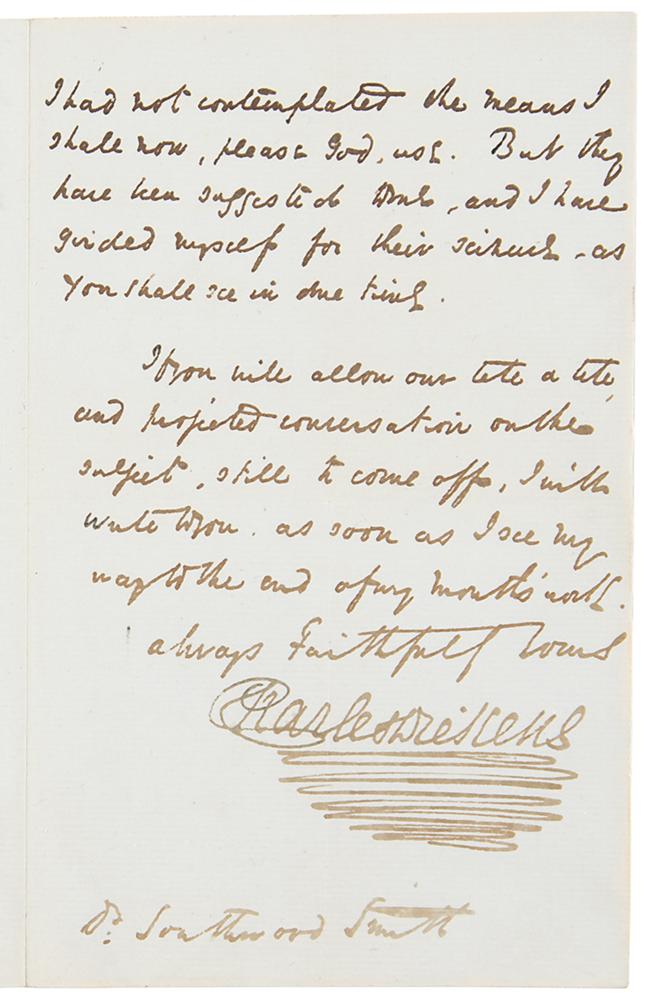 I had not contemplated the means I
shall now, please God, use. But they
have been suggested to me, and I have
girded myself for their seizure - as
you shall see in due time.
If you will allow our tete a tete,
and projected conversation on the
subject, still to come off, I will
write to you. as soon as I see my
way to the end of my month's work.
always Faithfully Yours
Charles Dickens
Dr. Southwood Smith